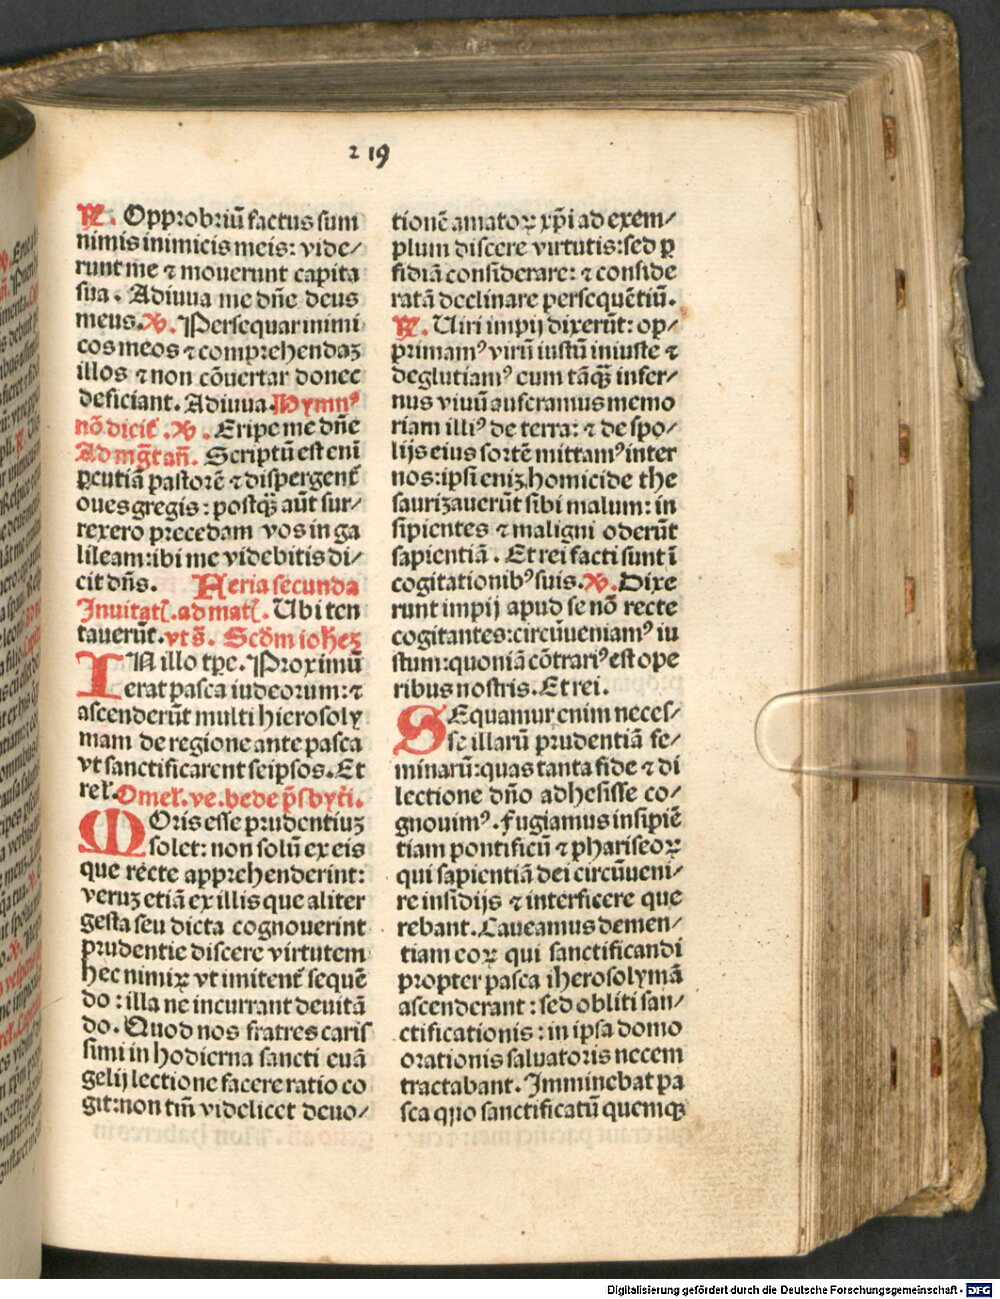 2 19
℟. Opprobriū factus sum
nimis inimicis meis: vide/
runt me ⁊ mouerunt capita
sua. Adiuua me dñe deus
meus. ℣. Persequar inimi
cos meos ⁊ comprehendaꝫ
illos ⁊ non cōuertar donec
deficiant. Adiuua. Hymnꝰ
nō dicit̃. ℣. Eripe me dñe
Ad mg̃t añ. Scriptū est eni
ꝑcutiā pastorē ⁊ dispergent̃
oues gregis: postqꝫ̃ aūt sur/
rexero precedam vos in ga
lileam: ibi me videbitis di/
cit dñs. Feria secunda
Inuitatꝉ. ad matꝉ. Ubi ten
tauerūt. vt s̃. Scd̃m iohẽꝫ
IN illo tpe. Proximū
erat pasca iudeorum: ⁊
ascenderūt multi hierosoly
mam de regione ante pasca
vt sanctificarent seipsos. Et
reꝉ. Omeꝉ. ve. bede p̃sbyt̃i.
MOris esse prudentiuꝫ
solet: non solū ex eis
que recte apprehenderint:
veruꝫ etiā ex illis que aliter
gesta seu dicta cognouerint
prudentie discere virtutem
hec nimiꝝ vt imitent̃ sequē
do: illa ne incurrant deuitā
do. Quod nos fratres caris
simi in hodierna sancti euā
gelij lectione facere ratio co
git: non tm̄ videlicet deuo/
tionē amatoꝝ xp̄i ad exem/
plum discere virtutis: sed ꝑ
fidiā considerare: ⁊ conside
ratā declinare persequētiū.
℟. Uiri impij dixerūt: op/
primamꝰ virū iustū iniuste ⁊
deglutiamꝰ eum tāqꝫ̃ infer/
nus viuū auferamus memo
riam illiꝰ de terra: ⁊ de spo/
lijs eius sortē mittamꝰ inter
nos: ipsi eniꝫ homicide the
saurizauerūt sibi malum: in
sipientes ⁊ maligni oderūt
sapientiā. Et rei facti sunt ī
cogitationibꝰ suis. ℣. Dixe
runt impij apud se nō recte
cogitantes: circūueniamꝰ iu
stum: quoniā cōtrariꝰ est ope
ribus nostris. Et rei.
SEquamur enim neces/
se illarū prudentiā fe/
minarū: quas tanta fide ⁊ di
lectione dño adhesisse co/
gnouimꝰ. fugiamus insipiē
tiam pontificū ⁊ phariseoꝝ
qui sapientiā dei circūueni/
re insidijs ⁊ interficere que
rebant. Caueamus demen/
tiam eoꝝ qui sanctificandi
propter pasca iherosolymā
ascenderant: sed obliti san/
ctificationis: in ipsa domo
orationis saluatoris necem
tractabant. Imminebat pa
sca quo sanctificatū quemqꝫ
Digitalisierung gefördert durch die Deutsche Forschungsgemeinschaft - DFG